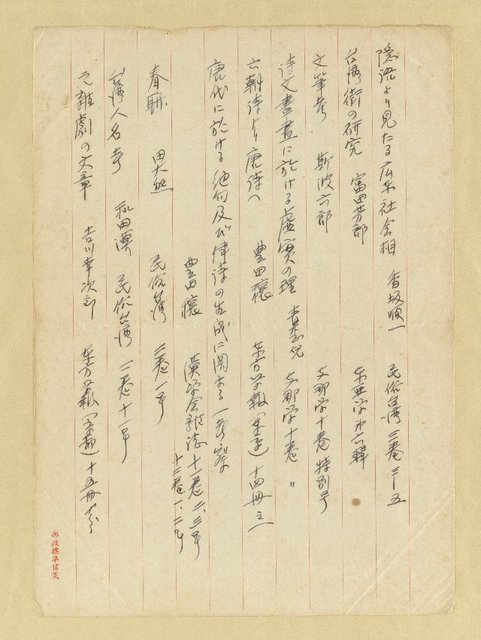 隠語より見たる広東社会相 香坂順一 民俗台湾 三巻 三—五
台湾街の研究 富田芳郎 東亜学 第六輯
文筆考 斯波六郎 支那学十巻 特別号
詩文書画に於ける虚実の理 青木正児 支那学十巻 〃
六朝詩より唐詩へ 豊田穣 東方学報(東京)十四冊之一
唐代に於ける絶句及び律詩の生成に関する一考察
豊田穣 漢学会雑誌 十一巻 二、三号
十二巻 一、二号
春聯 田大熊 民俗台湾 二巻一号
台湾人名考 民俗台湾 二巻十一号
元雑劇の文章 吉川幸次郎 東方学報(京都)十五冊
郵政標準信箋